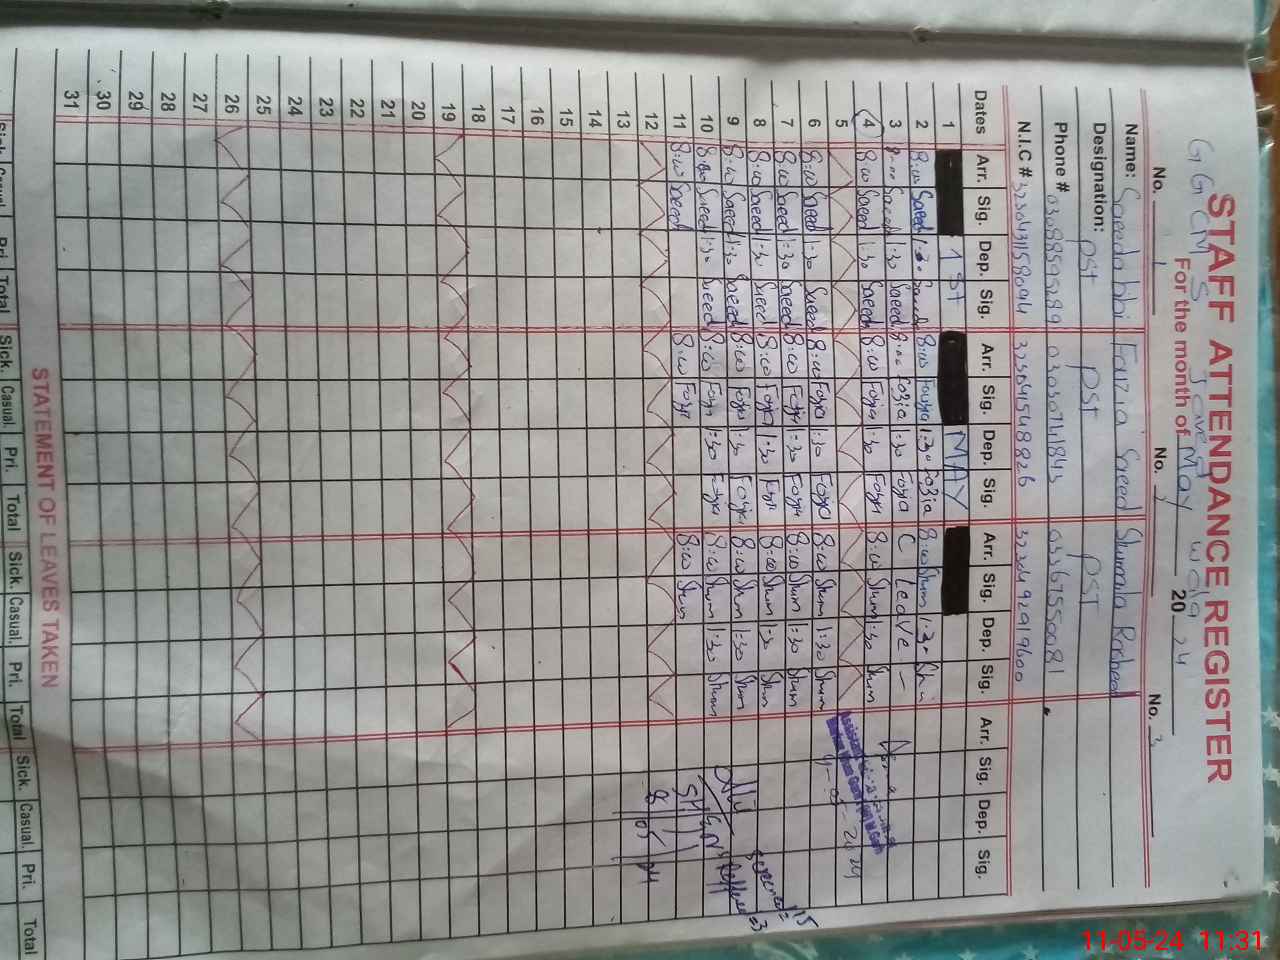 STAFF ATTENDANCE REGISTER
GGCM S
For the month of May 20 24
No. 1 No. 2 No. 3
Name: Saeeda bibi Fozia Saeed Shumila Rasheed
Designation: PST PST PST
Phone # 03088595289 03030741843 03367550081
N.I.C #
Dates Arr. Sig. Dep. Sig. Arr. Sig. Dep. Sig. Arr. Sig. Dep. Sig. Arr. Sig. Dep. Sig.
1 1 ST MAY
2 8:00 Saeed 1:30 Saeed 8:00 Fozia 1:30 Fozia 8:00 Shum 1:30 Shum
3 8:00 Saeed 1:30 Saeed 8:00 Fozia 1:30 Fozia C leave –
4 8:00 Saeed 1:30 Saeed 8:00 Fozia 1:30 Fozia 8:00 Shum 1:30 Shum
5
4-05-2024
6 8:00 Saeed 1:30 Saeed 8:00 Fozia 1:30 Fozia 8:00 Shum 1:30 Shum
7 8:00 Saeed 1:30 Saeed 8:00 Fozia 1:30 Fozia 8:00 Shum 1:30 Shum
8 8:00 Saeed 1:30 Saeed 8:00 Fozia 1:30 Fozia 8:00 Shum 1:30 Shum
9 8:00 Saeed 1:30 Saeed 8:00 Fozia 1:30 Fozia 8:00 Shum 1:30 Shum
10 8:00 Saeed 1:30 Saeed 8:00 Fozia 1:30 Fozia 8:00 Shum 1:30 Shum
11 8:00 Saeed 8:00 Fozia 8:00 Shum
12
8/05/24
13
14
15
16
17
18
19
20
21
22
23
24
25
26
27
28
29
30
31
STATEMENT OF LEAVES TAKEN
Sick. Casual. Pri. Total Sick. Casual. Pri. Total Sick. Casual. Pri. Total Sick. Casual. Pri. Total
11-05-24 11:31